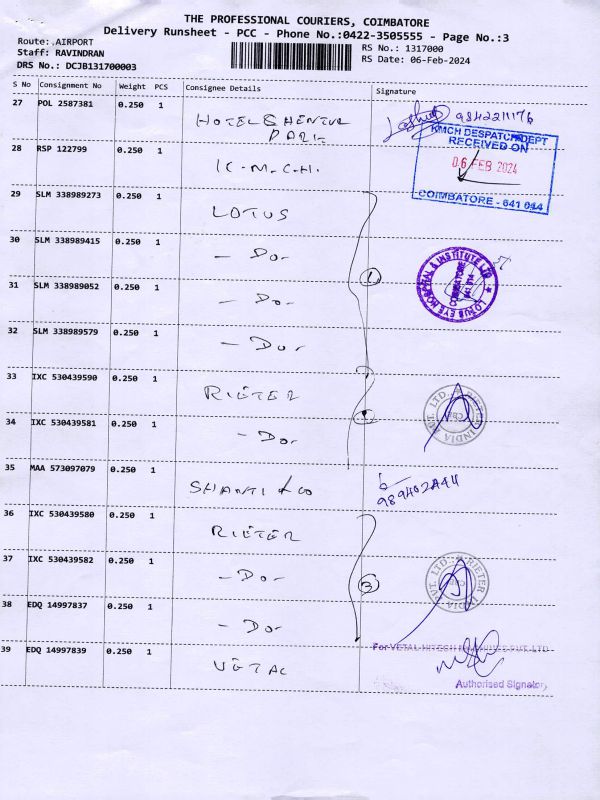 THE PROFESSIONAL COURIERS, COIMBATORE
Delivery Runsheet - PCC - Phone No.:0422-3505555 - Page No.:3
Route: AIRPORT
Staff: RAVINDRAN
DRS No.: DCJB131700003
RS No.: 1317000
RS Date: 06-Feb-2024
S No Consignment No Weight PCS Consignee Details Signature
27 POL 2587381 0.250 1 HOTEL SHENTUR PARK 9842211176
28 RSP 122799 0.250 1 K.M.C.H.
KMCH DESPATCH DEPT
RECEIVED ON
06 FEB 2024
COIMBATORE - 641 014
29 SLM 338989273 0.250 1 LOTUS
30 SLM 338989415 0.250 1 - Do -
31 SLM 338989052 0.250 1 - Do -
1
LOTUS EYE HOSPITAL & INSTITUTE LTD
COIMBATORE
641 014
32 SLM 338989579 0.250 1 - Do -
33 IXC 530439590 0.250 1 RIETER
34 IXC 530439581 0.250 1 - Do -
RIETER INDIA PVT. LTD.
CBE
35 MAA 573097079 0.250 1 SHANTI & CO
36 IXC 530439580 0.250 1 RIETER
37 IXC 530439582 0.250 1 - Do -
3
RIETER INDIA PVT. LTD.
CBE
38 EDQ 14997837 0.250 1 - Do -
39 EDQ 14997839 0.250 1 VETAL
For VETAL HITECH PVT. LTD
Authorised Signatory